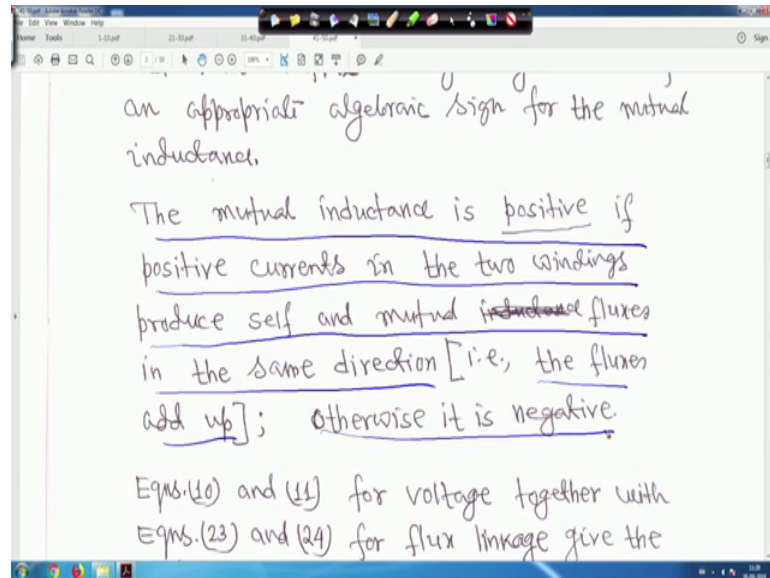 41-50.pdf - Adobe Acrobat Reader DC
File Edit View Window Help
Home Tools 1-10.pdf 21-30.pdf 31-40.pdf 41-50.pdf × Sign
an appropriate algebraic sign for the mutual
inductance.
The mutual inductance is positive if
positive currents in the two windings
produce self and mutual fluxes
in the same direction [i.e., the fluxes
add up]; otherwise it is negative.
Eqns.(10) and (11) for voltage together with
Eqns.(23) and (24) for flux linkage give the